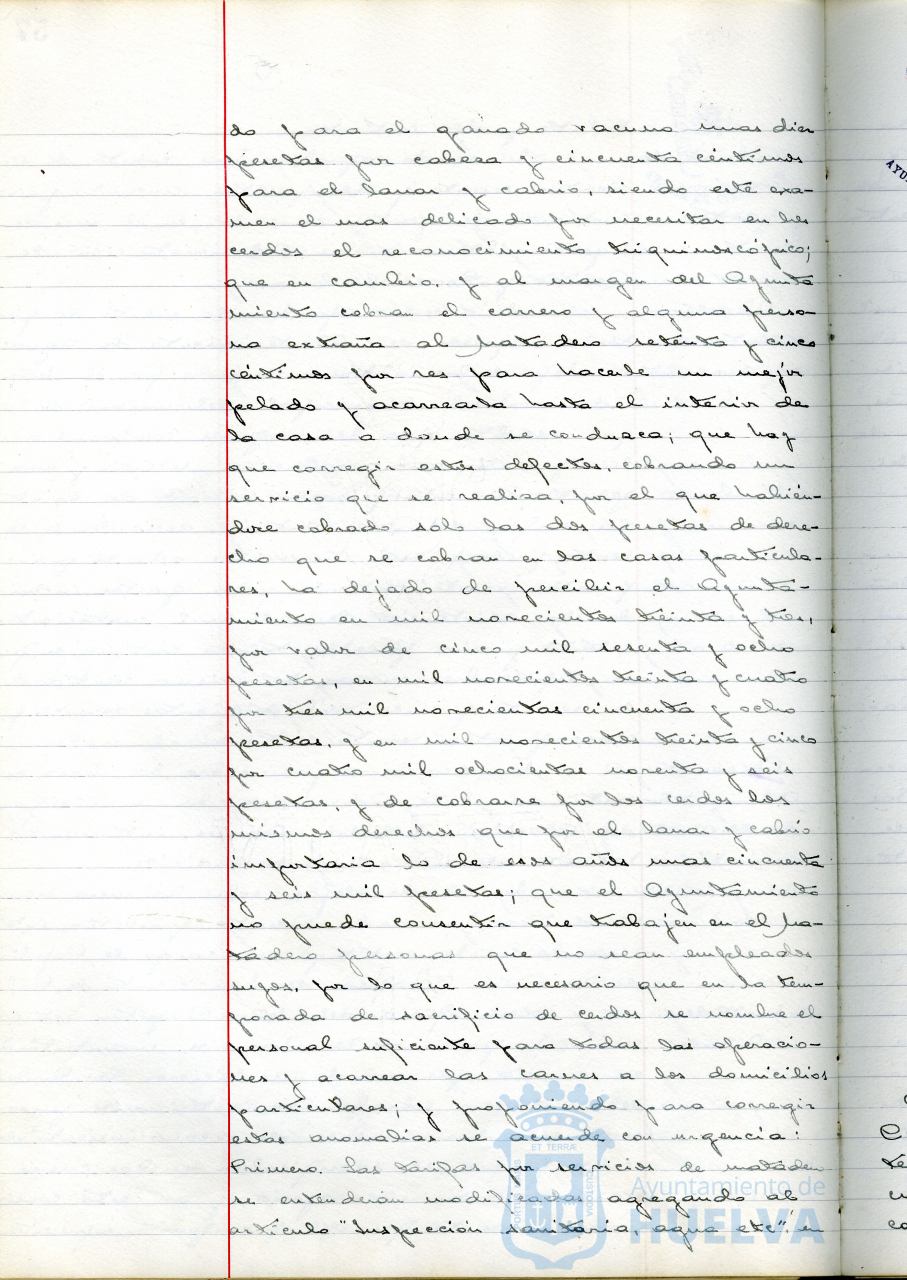 do para el ganado vacuno unas diez
pesetas por cabeza y cincuenta céntimos
para el lanar y cabrio, siendo este exa-
men el mas delicado por necesitar en los
cerdos el reconocimiento triquinoscópico;
que en cambio, y al margen del Ayunta
miento cobran el carrero y alguna perso-
na extraña al Matadero setenta y cinco
céntimos por res para hacerle un mejor
pelado y acarrearla hasta el interior de
la casa a donde se conduzca; que hay
que corregir estos defectos, cobrando un
servicio que se realiza, por el que habién-
dose cobrado solo las dos pesetas de dere-
cho que se cobran en las casas particula-
res, ha dejado de percibir el Ayunta-
miento en mil novecientos treinta y tres,
por valor de cinco mil sesenta y ocho
pesetas, en mil novecientos treinta y cuatro
por tres mil novecientas cincuenta y ocho
pesetas, y en mil novecientos treinta y cinco
por cuatro mil ochocientas noventa y seis
pesetas, y de cobrarse por los cerdos los
mismos derechos que por el lanar y cabrio
importaria lo de esos años unas cincuenta
y seis mil pesetas; que el Ayuntamiento
no puede consentir que trabajen en el Ma-
tadero personas que no sean empleados
suyos, por lo que es necesario que en la tem-
porada de sacrificio de cerdos se nombre el
personal suficiente para todas las operacio-
nes y acarrear las carnes a los domicilios
particulares; y proponiendo para corregir
estas anomalías se acuerde con urgencia:
Primero. Las tarifas por servicios de matadero
se entenderán modificadas agregando al
artículo "Inspección sanitaria, agua etc". en
ET TERRÆ
CUSTODIA
Ayuntamiento de
HUELVA
AYU